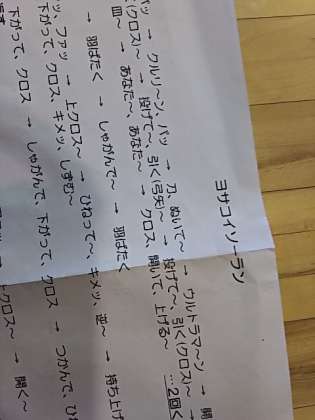 ヨサコイソーラン
バッ → クルリ〜ン、バッ → 刀ぬいて〜 → ウルトラマ〜ン → 開
(クロス)〜 → 投げて〜、引く(弓矢)〜 → 投げて〜、引く(クロス)〜 →
皿〜 → あなた〜、あなた〜 → クロス、開いて、上げる〜 …2回く
→ 羽ばたく → しゃがんで〜 → 羽ばたく
ッ、ファッ → 上クロス〜 → ひねって〜、キメッ、逆〜 → 持ち上げ
下がって、クロス、キメッ、しずむ〜
下がって、クロス → しゃがんで、下がって、クロス → つかんで、ひ
クロス〜 → 開く〜